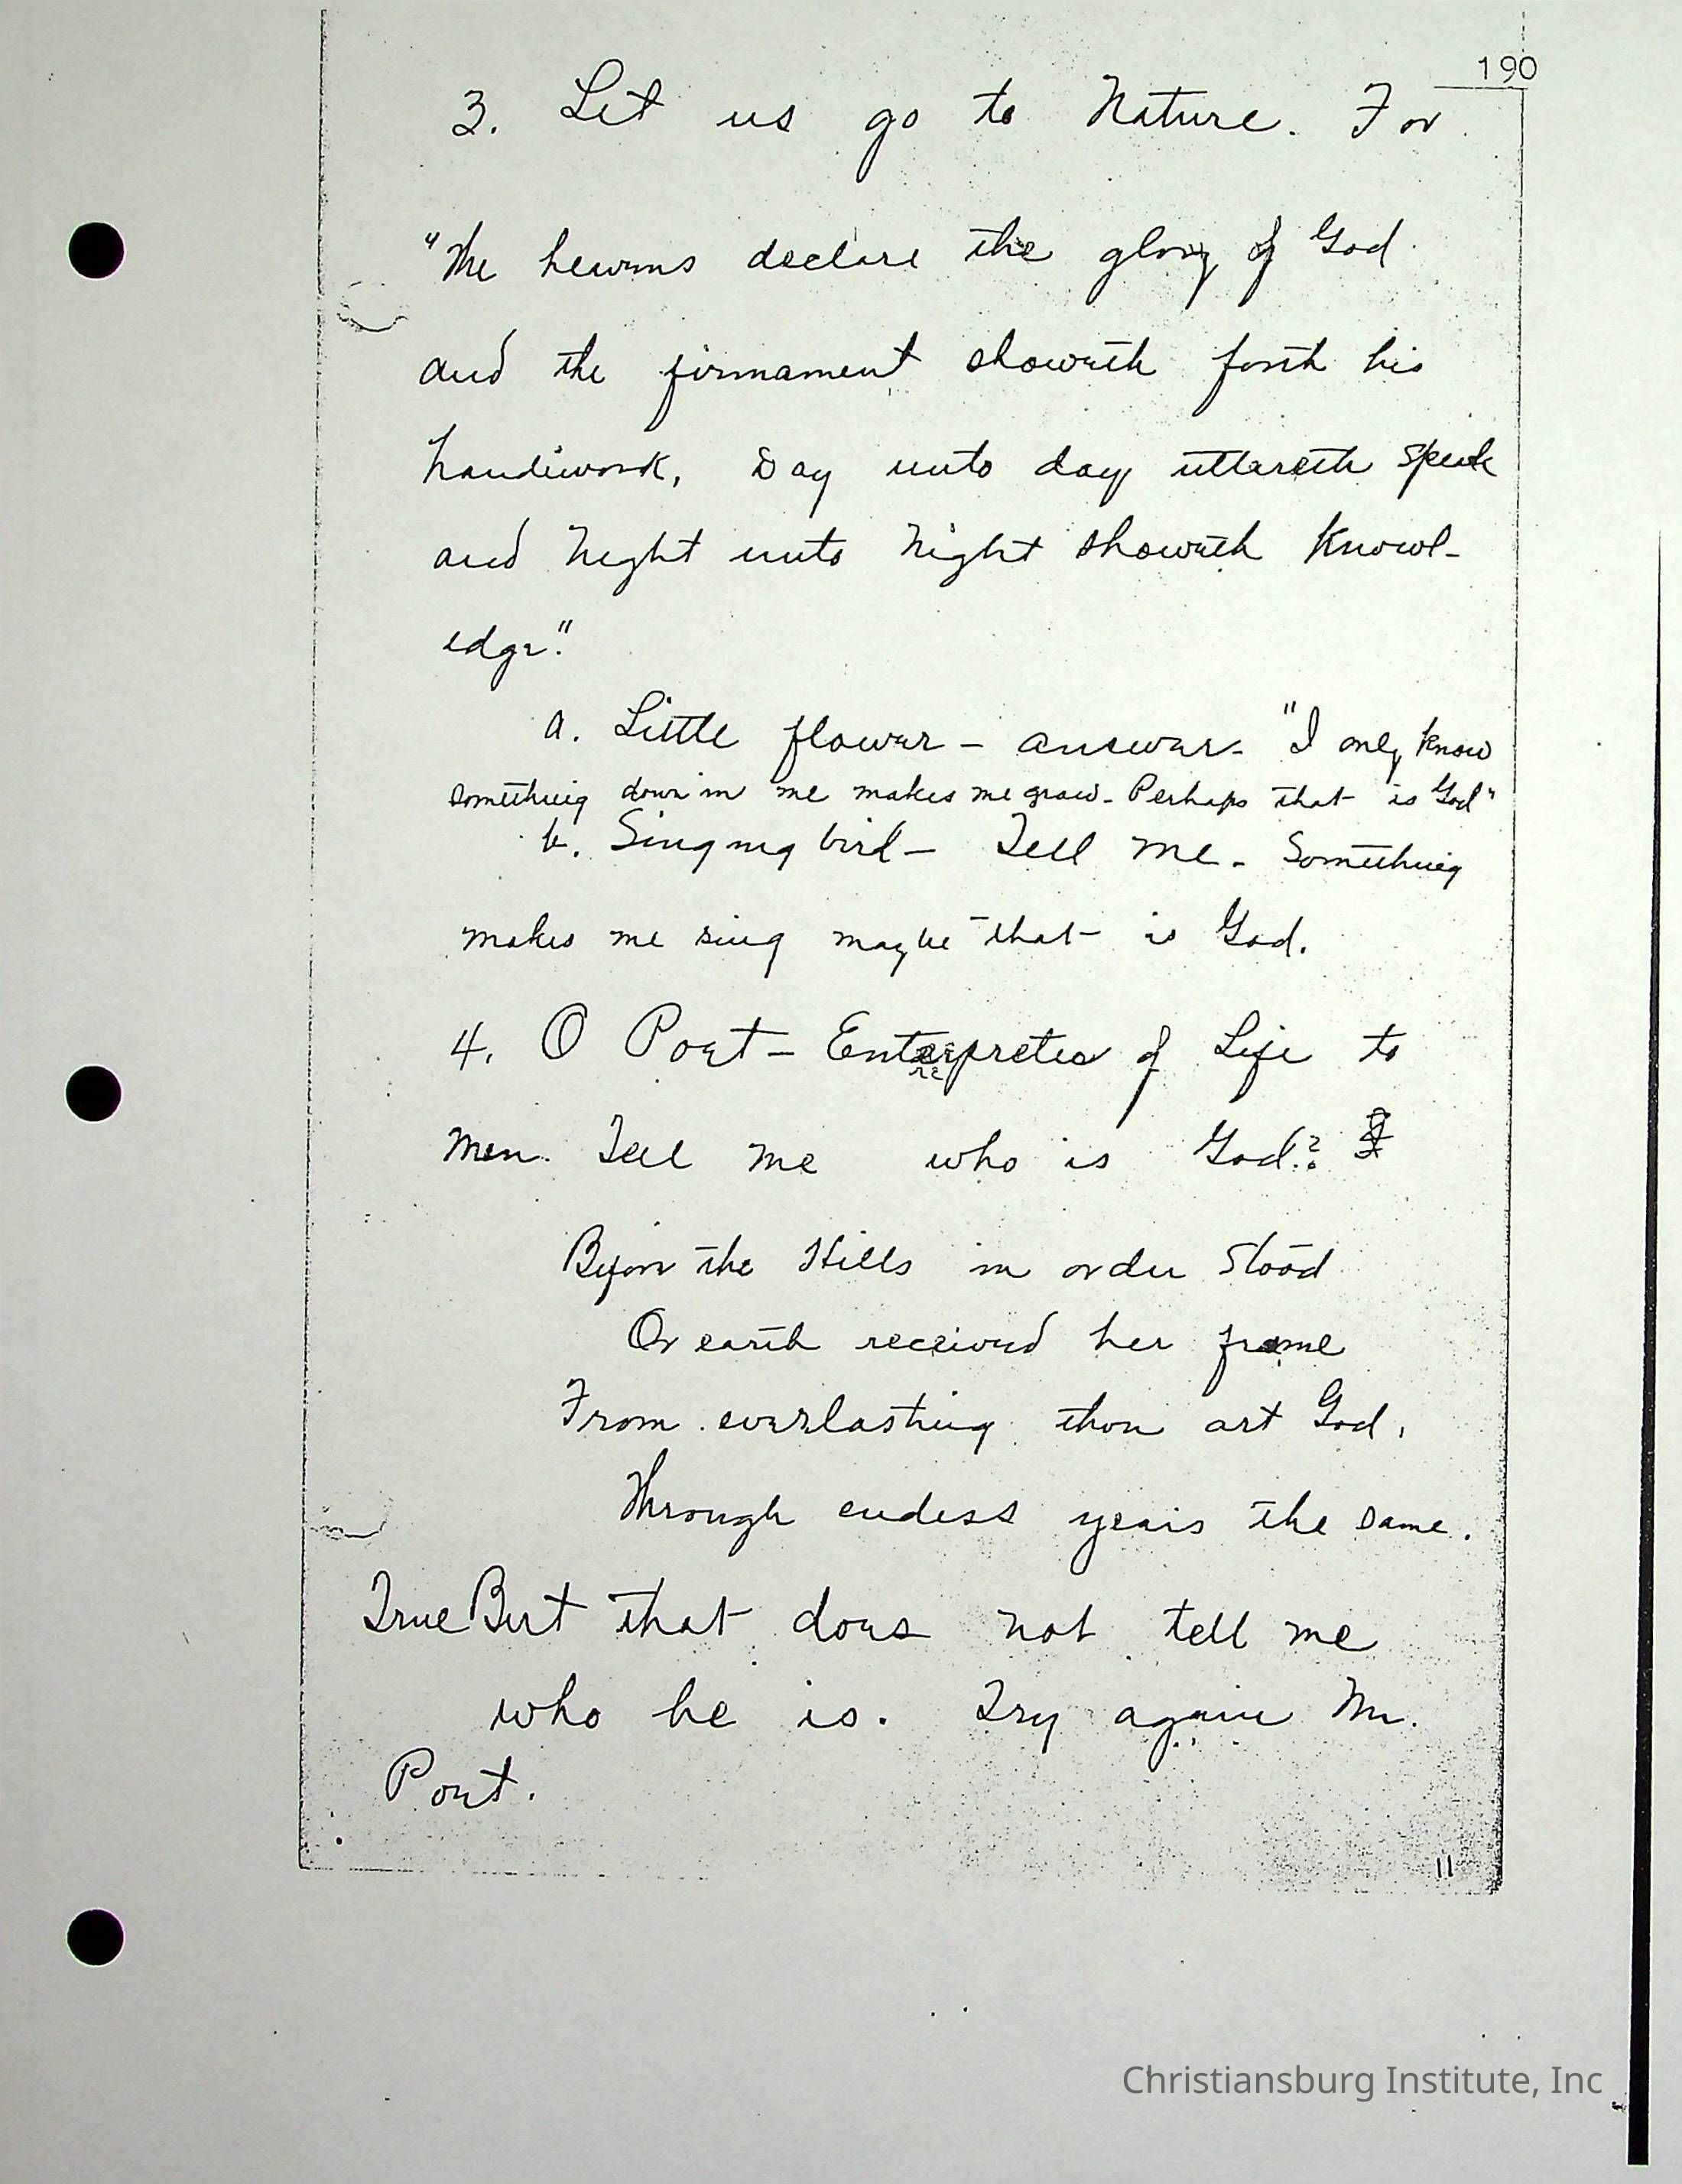 190
3. Let us go to Nature. For
"The heavens declare the glory of God
and the firmament showeth forth his
handiwork, Day unto day uttereth speech
and Night unto Night showeth Knowl-
edge."
a. Little flower - answer - "I only know
something down in me makes me grow - Perhaps that is God"
b. Singing bird - Tell me - Something
makes me sing maybe that is God.
4. O Poet - Enterpreter of Life to
Men. Tell me who is God?
Before the Hills in order stood
Or earth received her frame
From everlasting thou art God,
Through endless years the same.
True But that does not tell me
who he is. Try again Mr.
Poet.
11
Christiansburg Institute, Inc